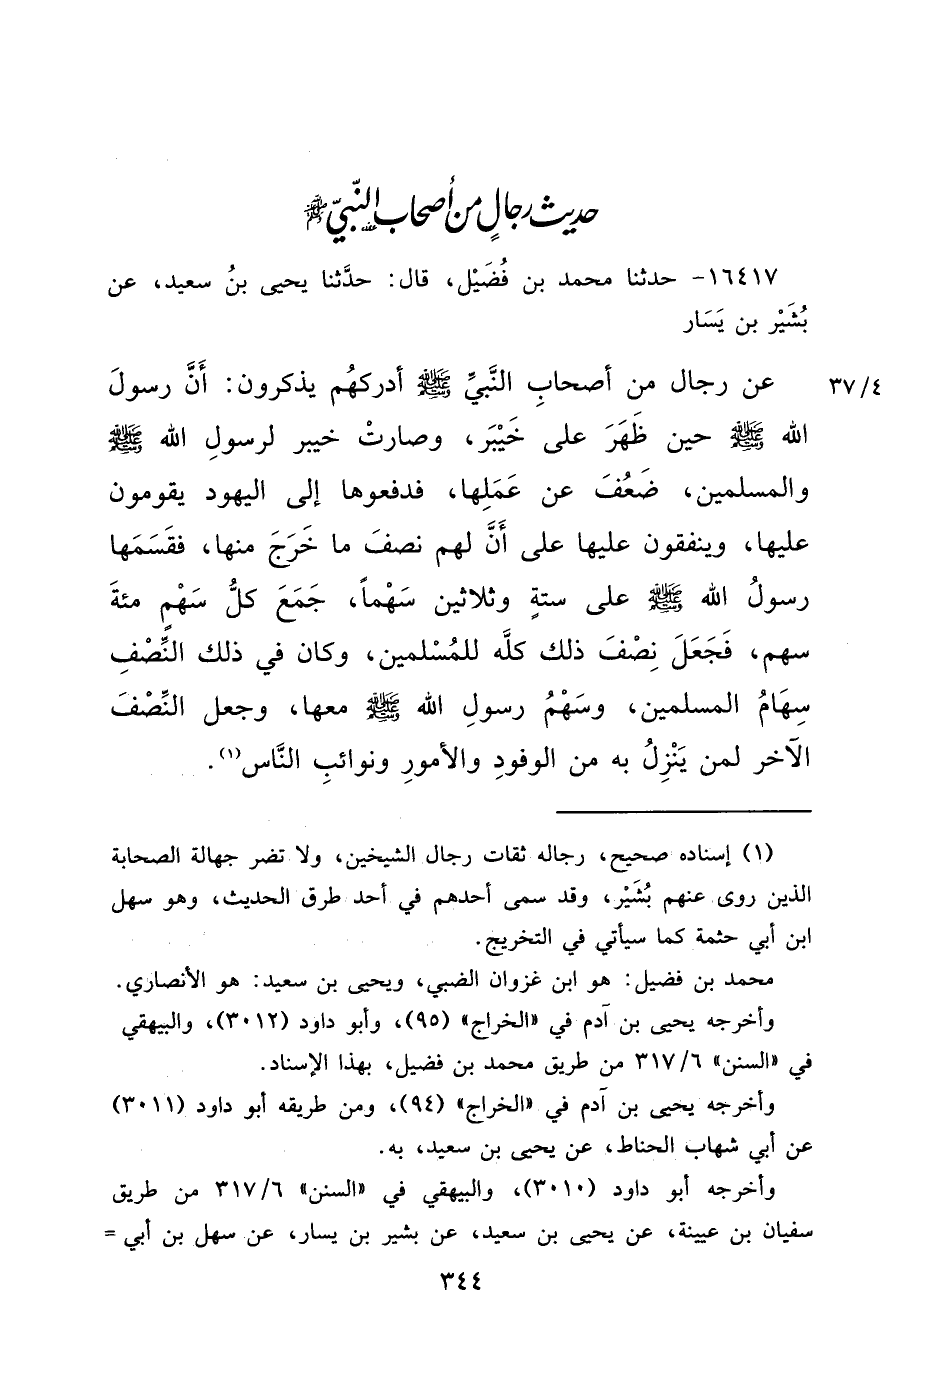 حديث رجالٍ من أصحاب النّبيّ ﷺ
١٦٤١٧- حدثنا محمد بن فُضَيْل، قال: حدَّثنا يحيى بنُ سعيد، عن
بُشَيْر بن يَسَار
٣٧/٤ عن رجال من أصحابِ النَّبيِّ ﷺ أدركهُم يذكرون: أَنَّ رسولَ
الله ﷺ حين ظَهَرَ على خَيْبَر، وصارتْ خيبر لرسولِ الله ﷺ
والمسلمين، ضَعُفَ عن عَمَلِها، فدفعوها إلى اليهود يقومون
عليها، وينفقون عليها على أَنَّ لهم نصفَ ما خَرَجَ منها، فقَسَمَها
رسولُ الله ﷺ على ستةٍ وثلاثين سَهْماً، جَمَعَ كلُّ سَهْمٍ مئةَ
سهم، فَجَعَلَ نِصْفَ ذلك كلَّه للمُسْلمين، وكان في ذلك النِّصْفِ
سِهَامُ المسلمين، وسَهْمُ رسولِ الله ﷺ معها، وجعل النِّصْفَ
الآخر لمن يَنْزِلُ به من الوفودِ والأمورِ ونوائبِ النَّاس(١).
(١) إسناده صحيح، رجاله ثقات رجال الشيخين، ولا تضر جهالة الصحابة
الذين روى عنهم بُشَيْر، وقد سمى أحدهم في أحد طرق الحديث، وهو سهل
ابن أبي حثمة كما سيأتي في التخريج.
محمد بن فضيل: هو ابن غزوان الضبي، ويحيى بن سعيد: هو الأنصاري.
وأخرجه يحيى بن آدم في «الخراج» (٩٥)، وأبو داود (٣٠١٢)، والبيهقي
في «السنن» ٣١٧/٦ من طريق محمد بن فضيل، بهذا الإسناد.
وأخرجه يحيى بن آدم في «الخراج» (٩٤)، ومن طريقه أبو داود (٣٠١١)
عن أبي شهاب الحناط، عن يحيى بن سعيد، به.
وأخرجه أبو داود (٣٠١٠)، والبيهقي في «السنن» ٣١٧/٦ من طريق
سفيان بن عيينة، عن يحيى بن سعيد، عن بشير بن يسار، عن سهل بن أبي =
٣٤٤